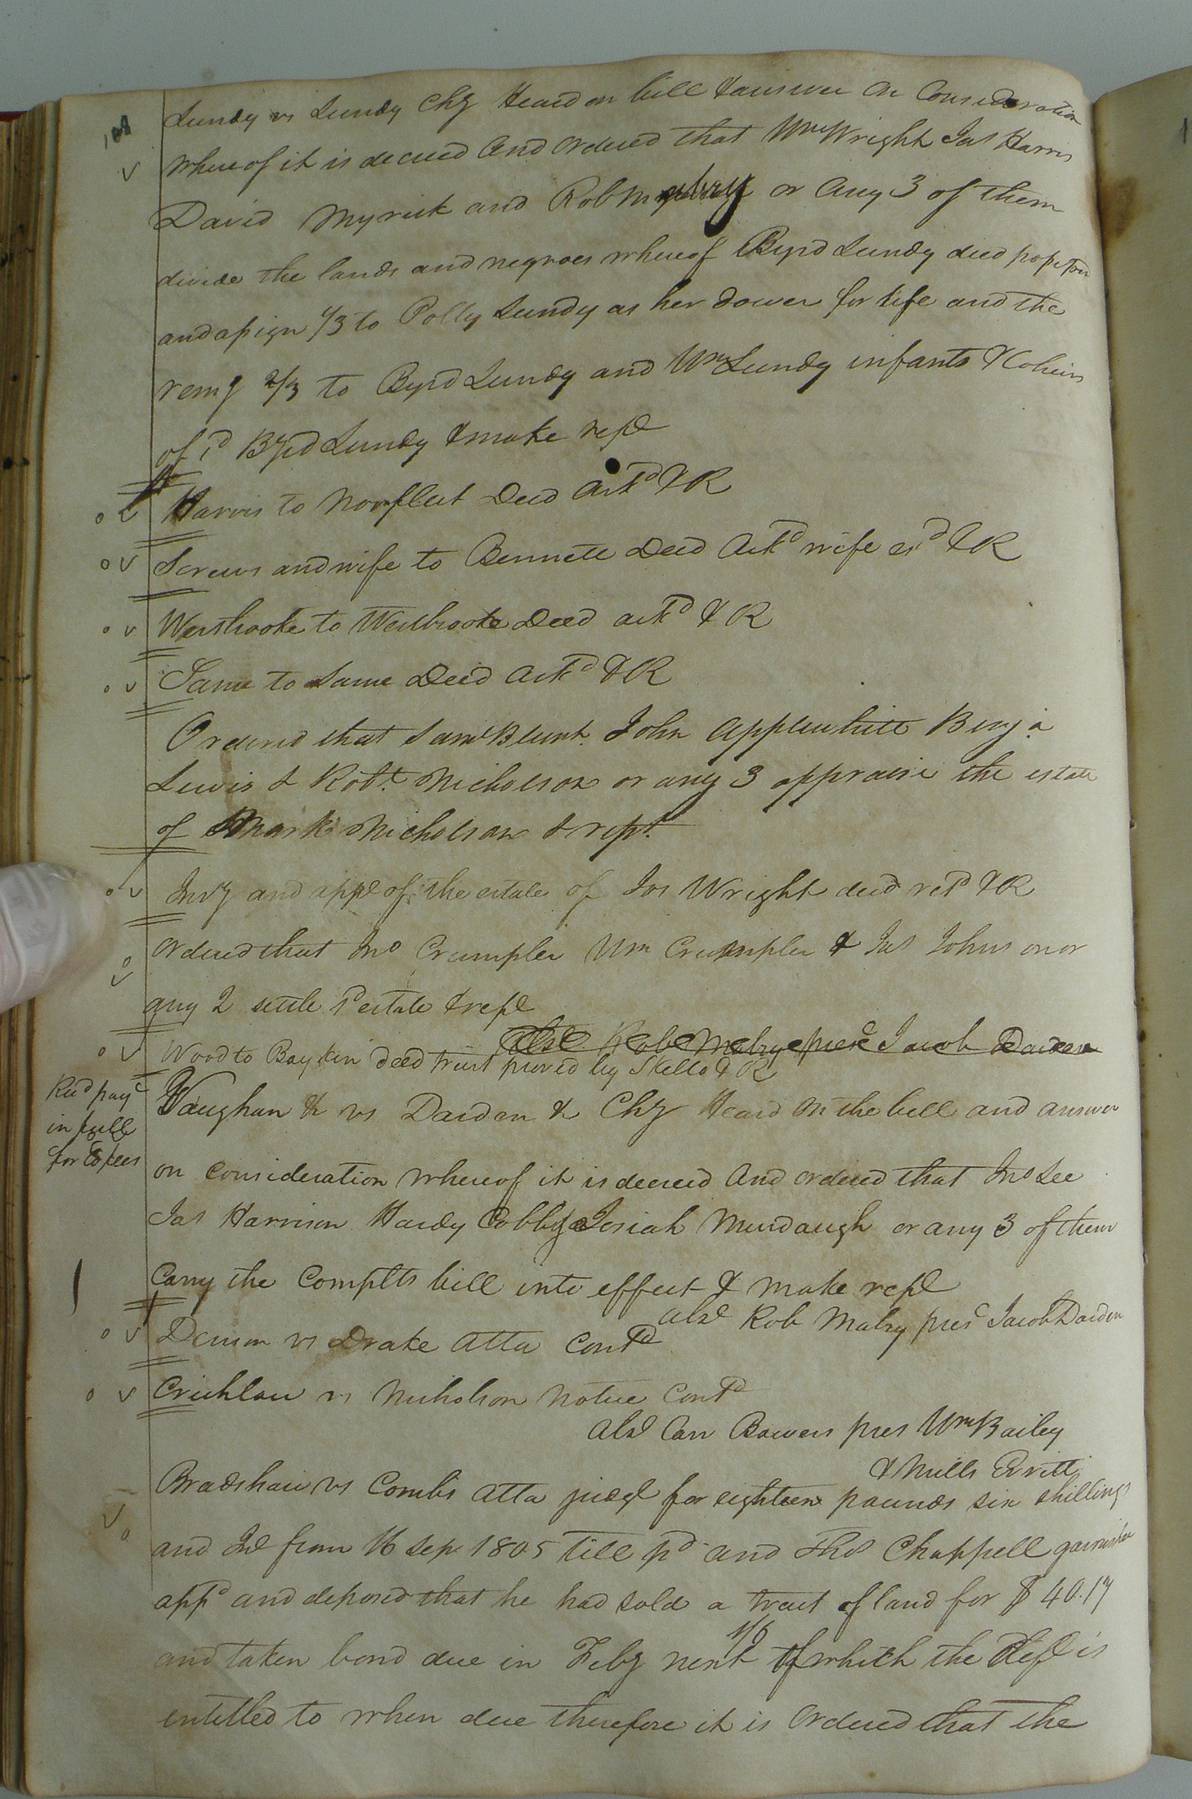 Lundy vs Lundy Chy Heard on bill & answer on Consideration
whereof it is decreed and ordered that Wm Wright Jas Harris
David Myrick and Rob Mabry or any 3 of them
divide the lands and negroes whereof Byrd Lundy decd
and assign 1/3 to Polly Lundy as her dower for life and the
remg 2/3 to Byrd Lundy and Wm Lundy infants & Coheirs
of sd Byrd Lundy & make rept
Harris to Norfleet Deed Ackd & R
Screws and wife to Bennett Deed Ackd wife exd & R
Westbrooke to Westbrooke Deed ackd & R
Same to Same Deed Ackd & R
Ordered that Saml Blunt John Applewhite Benja
Lewis & Robt Nicholson or any 3 appraise the estate
of Mark Nicholson & rept
Invy and appt of the estate of Jos Wright decd retd & R
Ordered that Jno Crumpler Wm Crumpler & Jas Johnson or
any 2 settle sd estate & rept
abst Rob Mabry prest Jacob Darden
Wood to Boykin deed trust proved by Skelto & R
Recd pay
in full
for Copies
Vaughan & vs Darden & Chy Heard on the bill and answer
on consideration whereof it is decreed and ordered that Jno Lee
Jas Harrison Hardy Cobb & Josiah Murdaugh or any 3 of them
Carry the Complts bill into effect & make rept
abst Rob Mabry prest Jacob Darden
Denson vs Drake Atta Contd
Crichlow vs Nicholson Notice Contd
Abst Carr Bowers pres Wm Bailey
& Mills Evritt
Bradshaw vs Combs Atta judgt for eighteen pounds six shillings
and Int from 16 Sep 1805 till pd and Thos Chappell garnishee
appd and deposed that he had sold a tract of land for $ 40.17
and taken bond due in Feby next 1/6 of which the Deft is
entitled to when due therefore it is Ordered that the